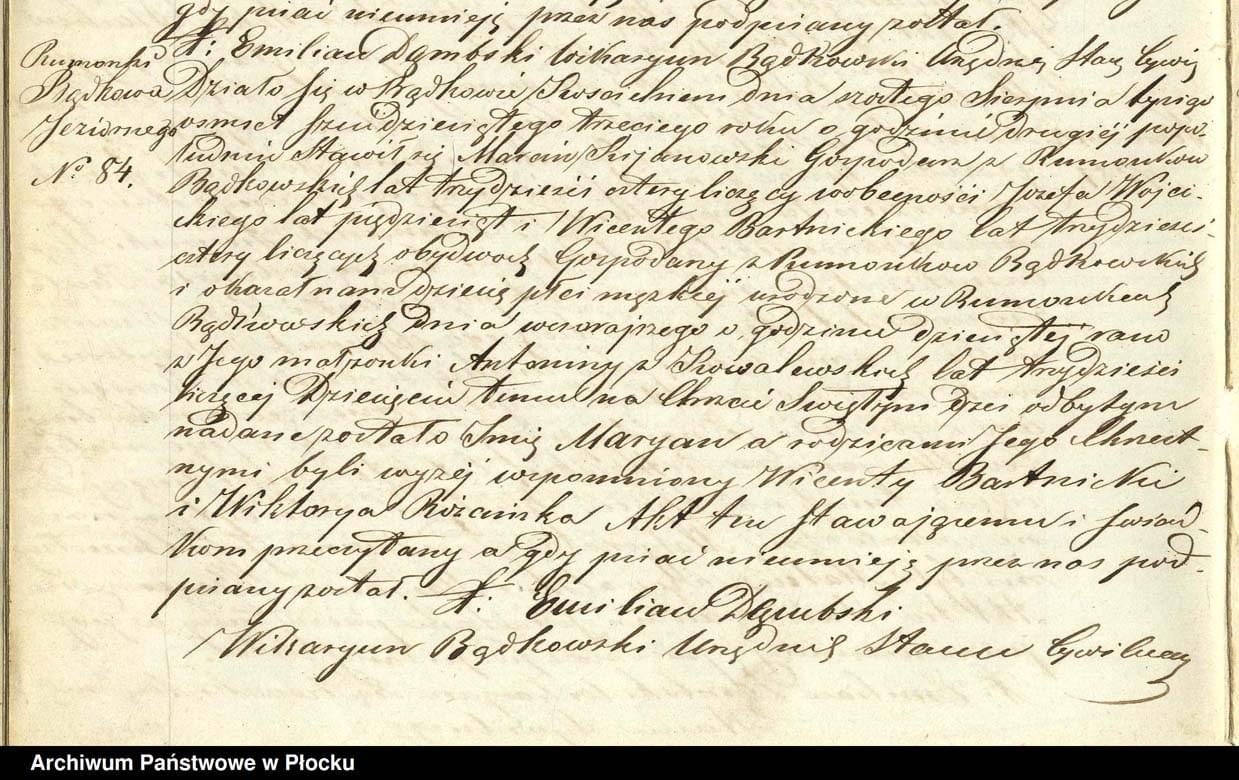 gdy pisać nieumieją przez nas podpisany został.
X: Emilian Dąmbski Wikaryusz Bądkowski Urzędnik Stanu Cywil
Rumonki
Bądkowa
Jeziornego
No 84.
Działo się w Bądkowie Kościelnem dnia szóstego Sierpnia tysiąc
osmset sześdziesiątego trzeciego roku o godzinie drugiéj popo-
łudniu Stawił się Marcin Gospodarz z Rumonkow
Bądkowskich lat trzydzieści cztery liczący w obecności Jozefa Wojci-
ckiego lat piędziesiąt i Wicentego Bartnickiego lat trzydzieści
cztery liczących obydwoch Gospodarzy z Rumonkow Bądkowskich
i okazał nam dziecię płci męzkiéj urodzone w Rumonkach
Bądkowskich dnia wczorajszego o godzinie dziewiątej rano
z Jego małżonki Antoniny z Kowalewskich lat trzydzieści
liczącej Dziecięciu temu na Chrzcie Swiętym dziś odbytym
nadane zostało Imię Maryan a rodzicami Jego Chrzest-
nymi byli wyżéj wspomniony Wicenty Bartnicki
i Wiktorya Rożańska Akt ten stawającemu i swiad-
kom przeczytany a gdy pisać nieumieją przez nas pod-
pisany został. X: Emilian Dąmbski
Wikaryusz Bądkowski Urzędnik Stanu Cywilnego
Archiwum Państwowe w Płocku